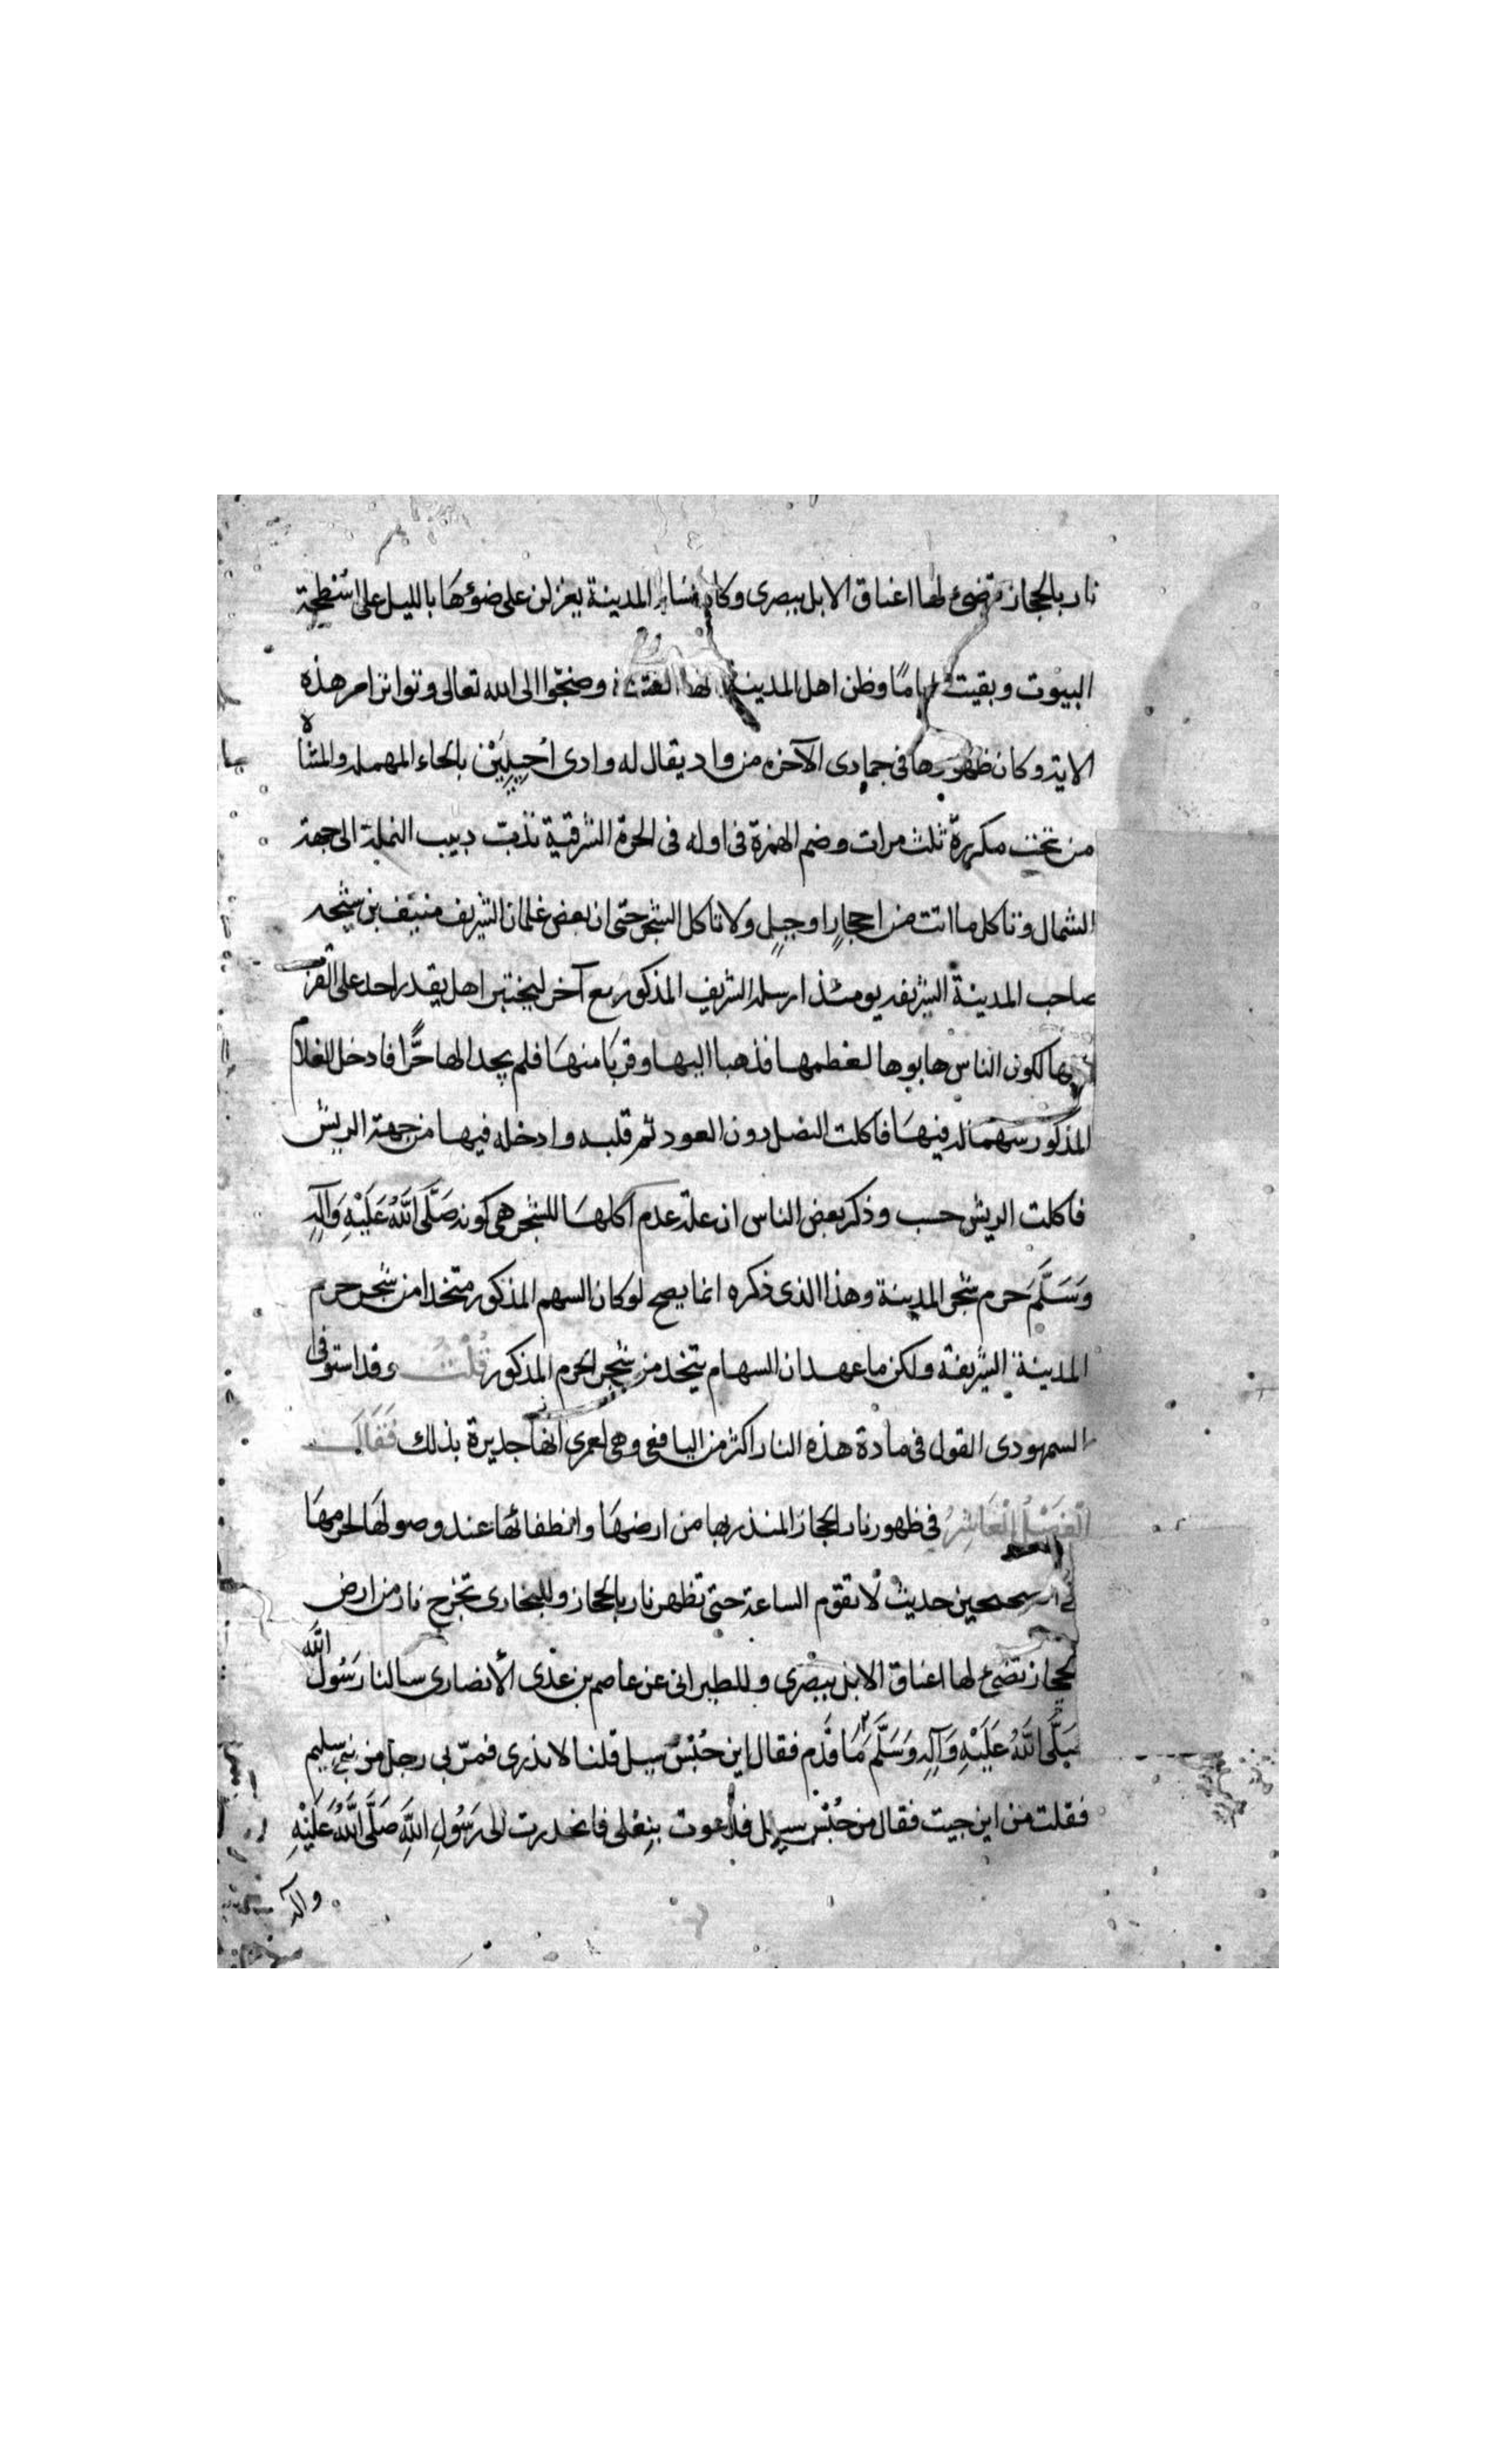 نار بالحجاز تضئ لها اعناق الابل ببصرى وكان نساء المدينة يغزلن على ضوئها بالليل على اسطحة
البيوت وبقيت اياما وظن اهل المدينة انها القيمة وضجوا الى الله تعالى وتواتر امر هذه
الاية وكان ظهورها فى جمادى الآخره من واد يقال له وادى احيليين بالحاء المهملة والمثناه
من تحت مكررة ثلث مرات وضم الهمزة فى اوله فى الحرة الشرقية تدب دبيب النملة الى جهة
الشمال وتاكل ما اتت من احجار او جبل ولا تاكل الشجر حتى ان بعض غلمان الشريف منيف بن شيحه
صاحب المدينة الشريفه يومئذ ارسله الشريف المذكور مع آخر ليختبرا هل يقدر احد على القرب
منها لكون الناس هابوها لعظمها فذهبا اليها وقربا منها فلم يجدا لها حرًّا فادخل الغلام
المذكور سهما له فيها فاكلت النصل دون العود ثم قلبه وادخله فيها من جهة الريش
فاكلت الريش حسب وذكر بعض الناس ان علة عدم اكلها للشجر هى كونه صَلَّى اللَّهُ عَلَيْهِ وَآلِهِ
وَسَلَّمَ حرم شجر المدينة وهذا الذى ذكره انما يصح لو كان السهم المذكور متخذا من شجر حرم
المدينة الشريفة ولكن ما عهد ان السهام يتخذ من شجر الحرم المذكور قُلْتُ وقد استوفى
السمهودى القول فى مادة هذه النار اكثر من اليافعى وهى لعمرى انها جديرة بذلك فَقَالَ
الْفَصْلُ الْعَاشِرُ فى ظهور نار الحجاز المنذر بها من ارضها وانطفائها عند وصولها لحرمها
فى الصحيحين حديث لا تقوم الساعة حتى تظهر نار بالحجاز وللبخارى تخرج نار من ارض
الحجاز تضئ لها اعناق الابل ببصرى وللطبرانى عن عاصم بن عدى الأنصارى سالنا رَسُولُ اللَّه
صَلَّى اللَّهُ عَلَيْهِ وَآلِهِ وَسَلَّمَ مَا قَدِم فقال اين حُبْسُ سيل قلنا لا ندرى فمرّ بى رجل من بنى سليم
فقلت من اين جيت فقال من حُبْسِ سيل فدعوت بنعلى فانحدرت الى رَسُولِ اللَّهِ صَلَّى اللَّهُ عَلَيْهِ
وآله